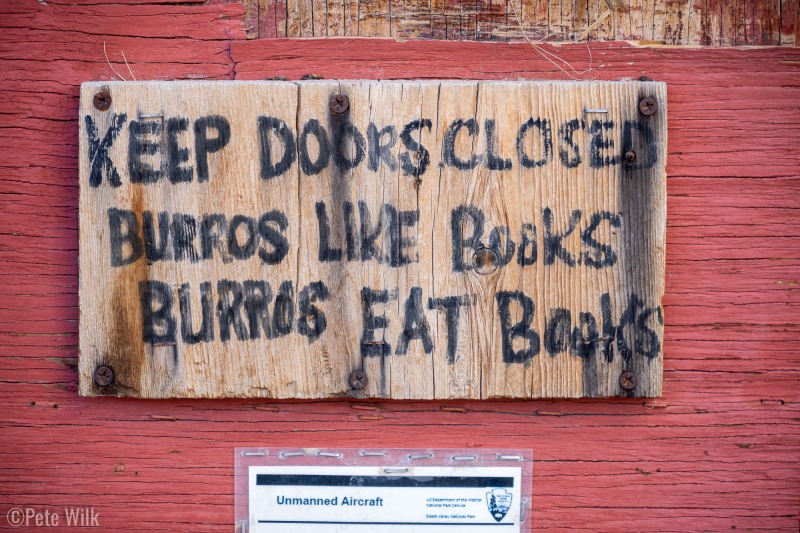 KEEP DOORS CLOSED
BURROS LIKE BOOKS
BURROS EAT BOOKS
Unmanned Aircraft
US Department of the Interior
National Park Service
Death Valley National Park
©Pete Wilk